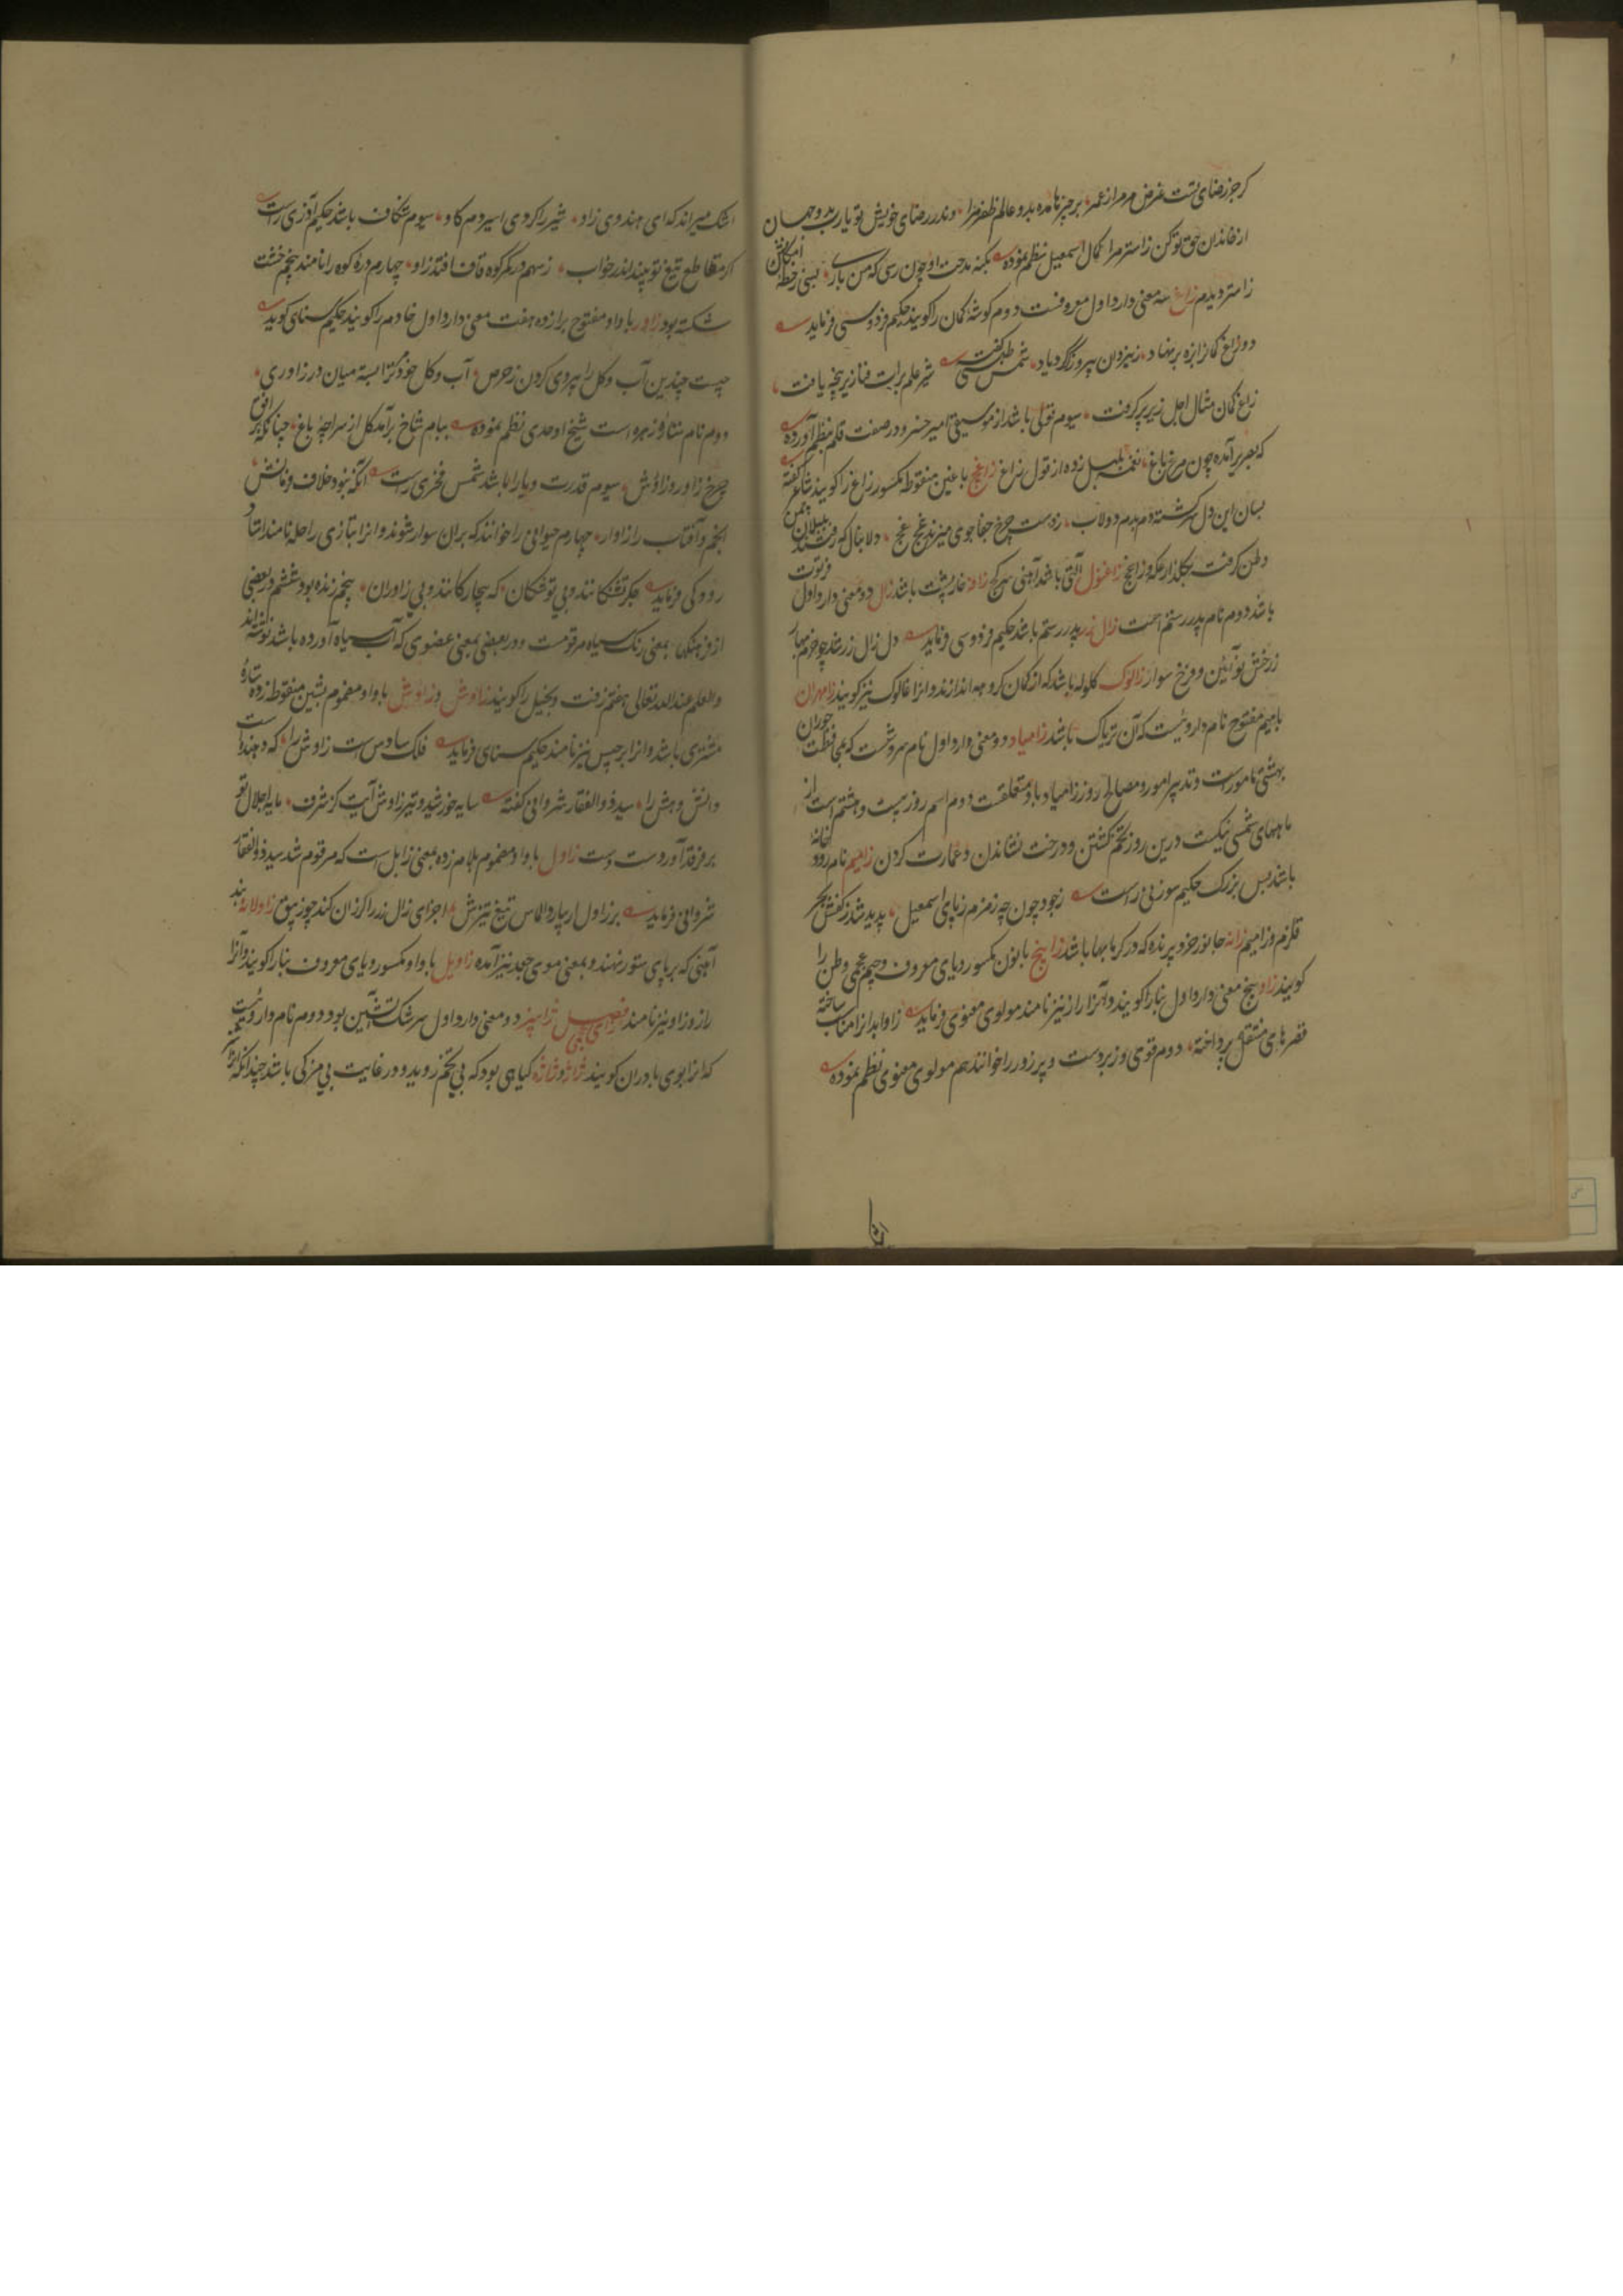 کر جز رضای تست غرض مر مرا ز عمر بر چیزها مده بدو عالم ظفر مرا وندر رضای خویش تو یا رب بدو جهان
از خاندان حق تو مکن زاستر مرا کمال اسمعیل نظم نموده بکنه مدحت او چون رسی که من باری بسی ز خطه امکانش
زاستر دیدم زاغ سه معنی دارد اول معروفست دوم کوشه کمان را کویند حکیم فردوسی فرماید
دو زاغ کمان را بزه بر نهاد ز یزدان پیروزکر کرد یاد شمس طبسی کفت شیر علم برات فنا زیر پنجه یافت
زاغ کمان مثال اجل زیر پر کرفت سیوم قولی باشد از موسیقی امیر خسرو در صفت قلم نظم آورده
که بصریر آمده چون مرغ باغ نغمه بلبل زده از قول زاغ زاغج با غین منقوطه مکسور زاغ را کویند شاعر کفته
بسان این دل سرکشته دم بدم دولاب زدست چرخ جفا جوی میزند غج غج دلا بنال که رفتند بلبلان ز چمن
وطن کرفت بکلذار عکه و زاغج زاغنول آلتی باشد آهنی سر کج زافه خارپشت باشد زال دو معنی دارد اول فرتوت
باشد دوم نام پدر رستم است زال زر پدر رستم باشد حکیم فردوسی فرماید دل زال زر شد چو خرم بهار
ز رخش نو آیین و فرخ سوار زالوک کلوله باشد که از کمان کروهه اندازند و انرا غالوک نیز کویند زامهران
با میم مفتوح نام داروئیست که آن تریاک باشد زامیاد دو معنی دارد اول نام سروشست که بمحافظت حوران
بهشتی مامورست و تدبیر امور و مصالح روز زامیاد بدو متعلقست دوم اسم روز بیست و هشتم است از
ماههای شمسی نیکست درین روز تخم کشتن و درخت نشاندن و عمارت کردن زامیم نام رود خانه
باشد بس بزرک حکیم سوزنی راست ز جود چون چه زمزم ز پای اسمعیل پدید شد ز کفش بحر
قلزم و زامیم زانه جانور خرد پرنده که در کرمابها باشد زانیج با نون مکسور و یای معروف و جیم عجمی وطن را
کویند زاو پنج معنی دارد اول بنا را کویند و آنرا راز نیز نامند مولوی معنوی فرماید زاو ابداز انتاب ساخته
قصرهای منتقل پرداخته دوم قوی و زبردست و پر زور را خوانند هم مولوی معنوی نظم نموده
اشک میراند که ای هندوی زاو شیر را کردی اسیر دم کاو سیوم شکاف باشد حکیم آذری راست
کر مقاطع تیغ تو بیند اندر خواب ز سهم در کمر کوه قاف افتد زاو چهارم دره کوه را نامند پنجم خشت
شکسته بود زاور با واو مفتوح برا زده هفت معنی دارد اول خادم را کویند حکیم سنای کوید
چیست چندین آب و کل را پیروی کردن ز حرص آب و کل خود مر ترا بسته میان در زاوری
دوم نام ستاره زهره است شیخ اوحدی نظم نموده ببام شاخ برآمد کل از سراچه باغ چنانکه بر افق
چرخ زاور و زاوش سیوم قدرت و یارا باشد شمس فخری راست آنکه نبود خلاف فرمانش
انجم و آفتاب را زاوار چهارم حیوانی را خوانند که بران سوار شوند و انرا بتازی راحله نامند استاد
رودکی فرماید جکر تشنکانند و بی توشکان که بیچارکانند و بی زاوران پنجم زنده بود ششم در بعضی
از فرهنکها بمعنی رنک سیاه مرقومست و در بعضی بمعنی عضوی که آب سیاه آورده باشد نوشته اند
والعلم عند الله تعالی هفتم زفت و بخیل را کویند زاوش و زاوش با واو مضموم بشین منقوطه زده ستاره
مشتری باشد و انرا برجیس نیز نامند حکیم سنای فرماید فلک سادس است زاوش را که دهنده است
دانش و هش را سید ذوالفقار شروانی کفته سایه خورشید و تیر زاوش آیت کز شرف مایه اجلال تو
بر فرقد آوردست دست زاول با واو مضموم بلام زده بمعنی زابل است که مرقوم شد سید ذوالفقار
شروانی فرماید بر زاول ار ببارد الماس تیغ تیزش اجزای زال زر را کرزان کند چو زیبق زاولانه بند
آهنی که بر پای ستور نهند و بمعنی موی جعد نیز آمده زاویل با واو مکسور و یای معروف بنا را کویند و آنرا
راز و زاو نیز نامند فصل زای عجمی ژابیز دو معنی دارد اول سرشک آتشین بود دوم نام داروئیست
که انرا بوی مادران کویند ژاژ و ژاژه کیاهی بود که بی تخم روید و در غایت بی مزکی باشد چندانکه شتر